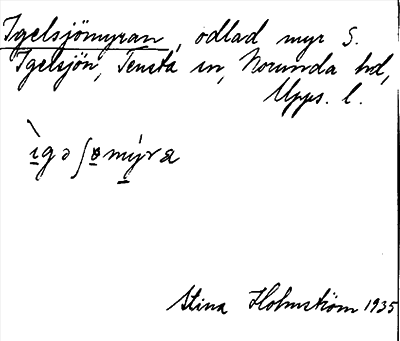 Igelsjömyran, odlad myr S.
Igelsjön, Tensta sn, Norunda hd,
Upps. l.
ìgəʃømýra
Stina Holmström 1935